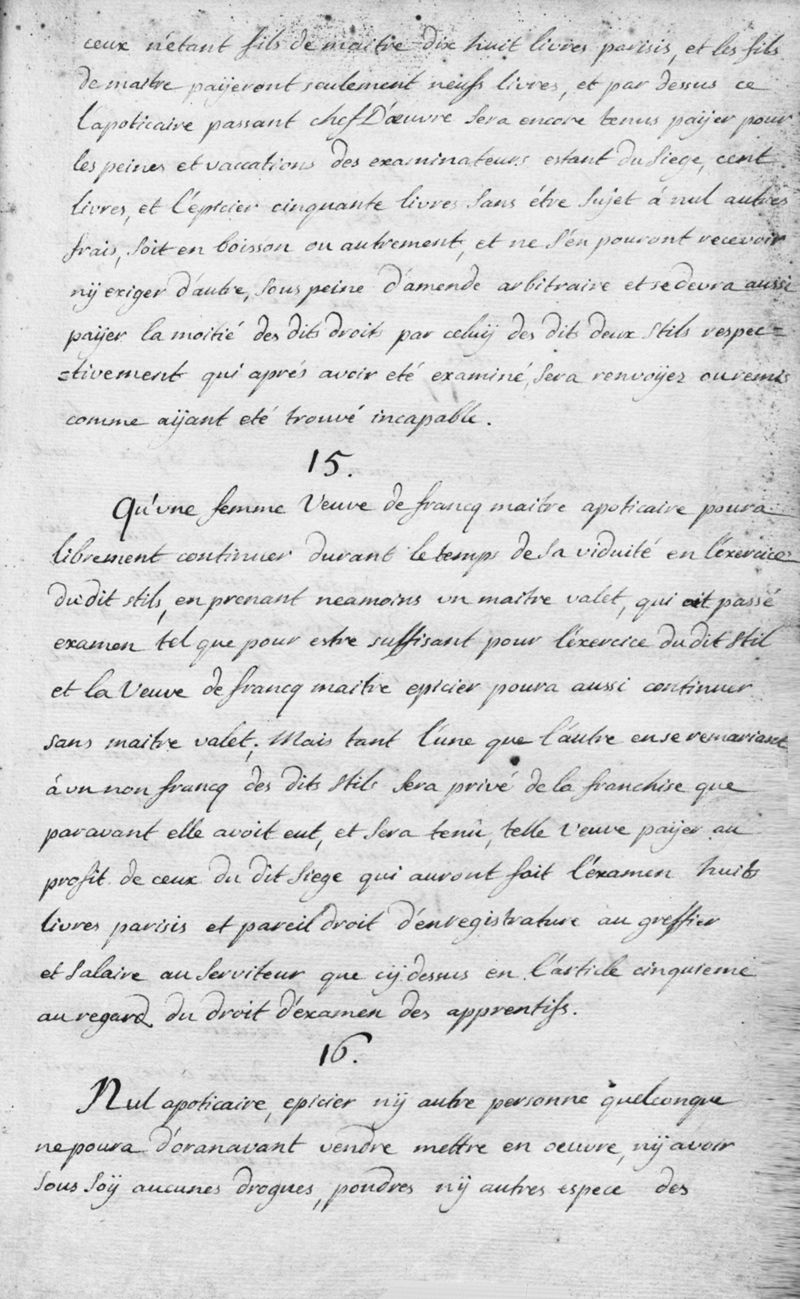 ceux n'étant fils de maitre dix huit livres parisis, et les fils
de maitre paÿeront seulement neufs livres, et par dessus ce
l'apoticaire passant chef D'œuvre sera encore tenus paÿer pour
les peines et vaccations des examinateurs estant du siege, cent
livres, et l'épicier cinquante livres sans étre sujet á nul autres
frais, soit en boisson ou autrement, et ne s'én pouront recevoir
nÿ exiger d'autre, sous peine d'amende arbitraire et se devra aussi
paÿer la moitié des dits droits par celuÿ des dits deux stils respec=
=tivement qui aprés avoir eté examiné, sera renvoÿez ou remis
comme aÿant eté trouvé incapable.
15.
Qu'vne femme Veuve de francq maitre apoticaire poura
librement continuer durant le temps de sa viduité en l'éxercice
du dit stils, en prenant neamoins vn maitre valet, qui ait passé
examen tel que pour estre suffisant pour l'éxercice du dit stil
et la Veuve de francq maitre epicier poura aussi continuer
sans maitre valet; Mais tant l'une que l'autre en se remariant
á vn non francq des dits stils sera privé de la franchise que
paravant elle avoit eut, et sera tenû, telle Veuve paÿer au
profit de ceux du dit siege qui auront fait l'éxamen huits
livres parisis et pareil droit d'énregistrature au greffier
et salaire au serviteur que cÿ dessus en l'article cinquieme
au regard du droit d'éxamen des apprentifs.
16.
Nul apoticaire, epicier nÿ autre personne quelconque
ne poura d'oranavant vendre mettre en oeuvre, nÿ avoir
sous soÿ aucunes drogues, poudres nÿ autres espece des